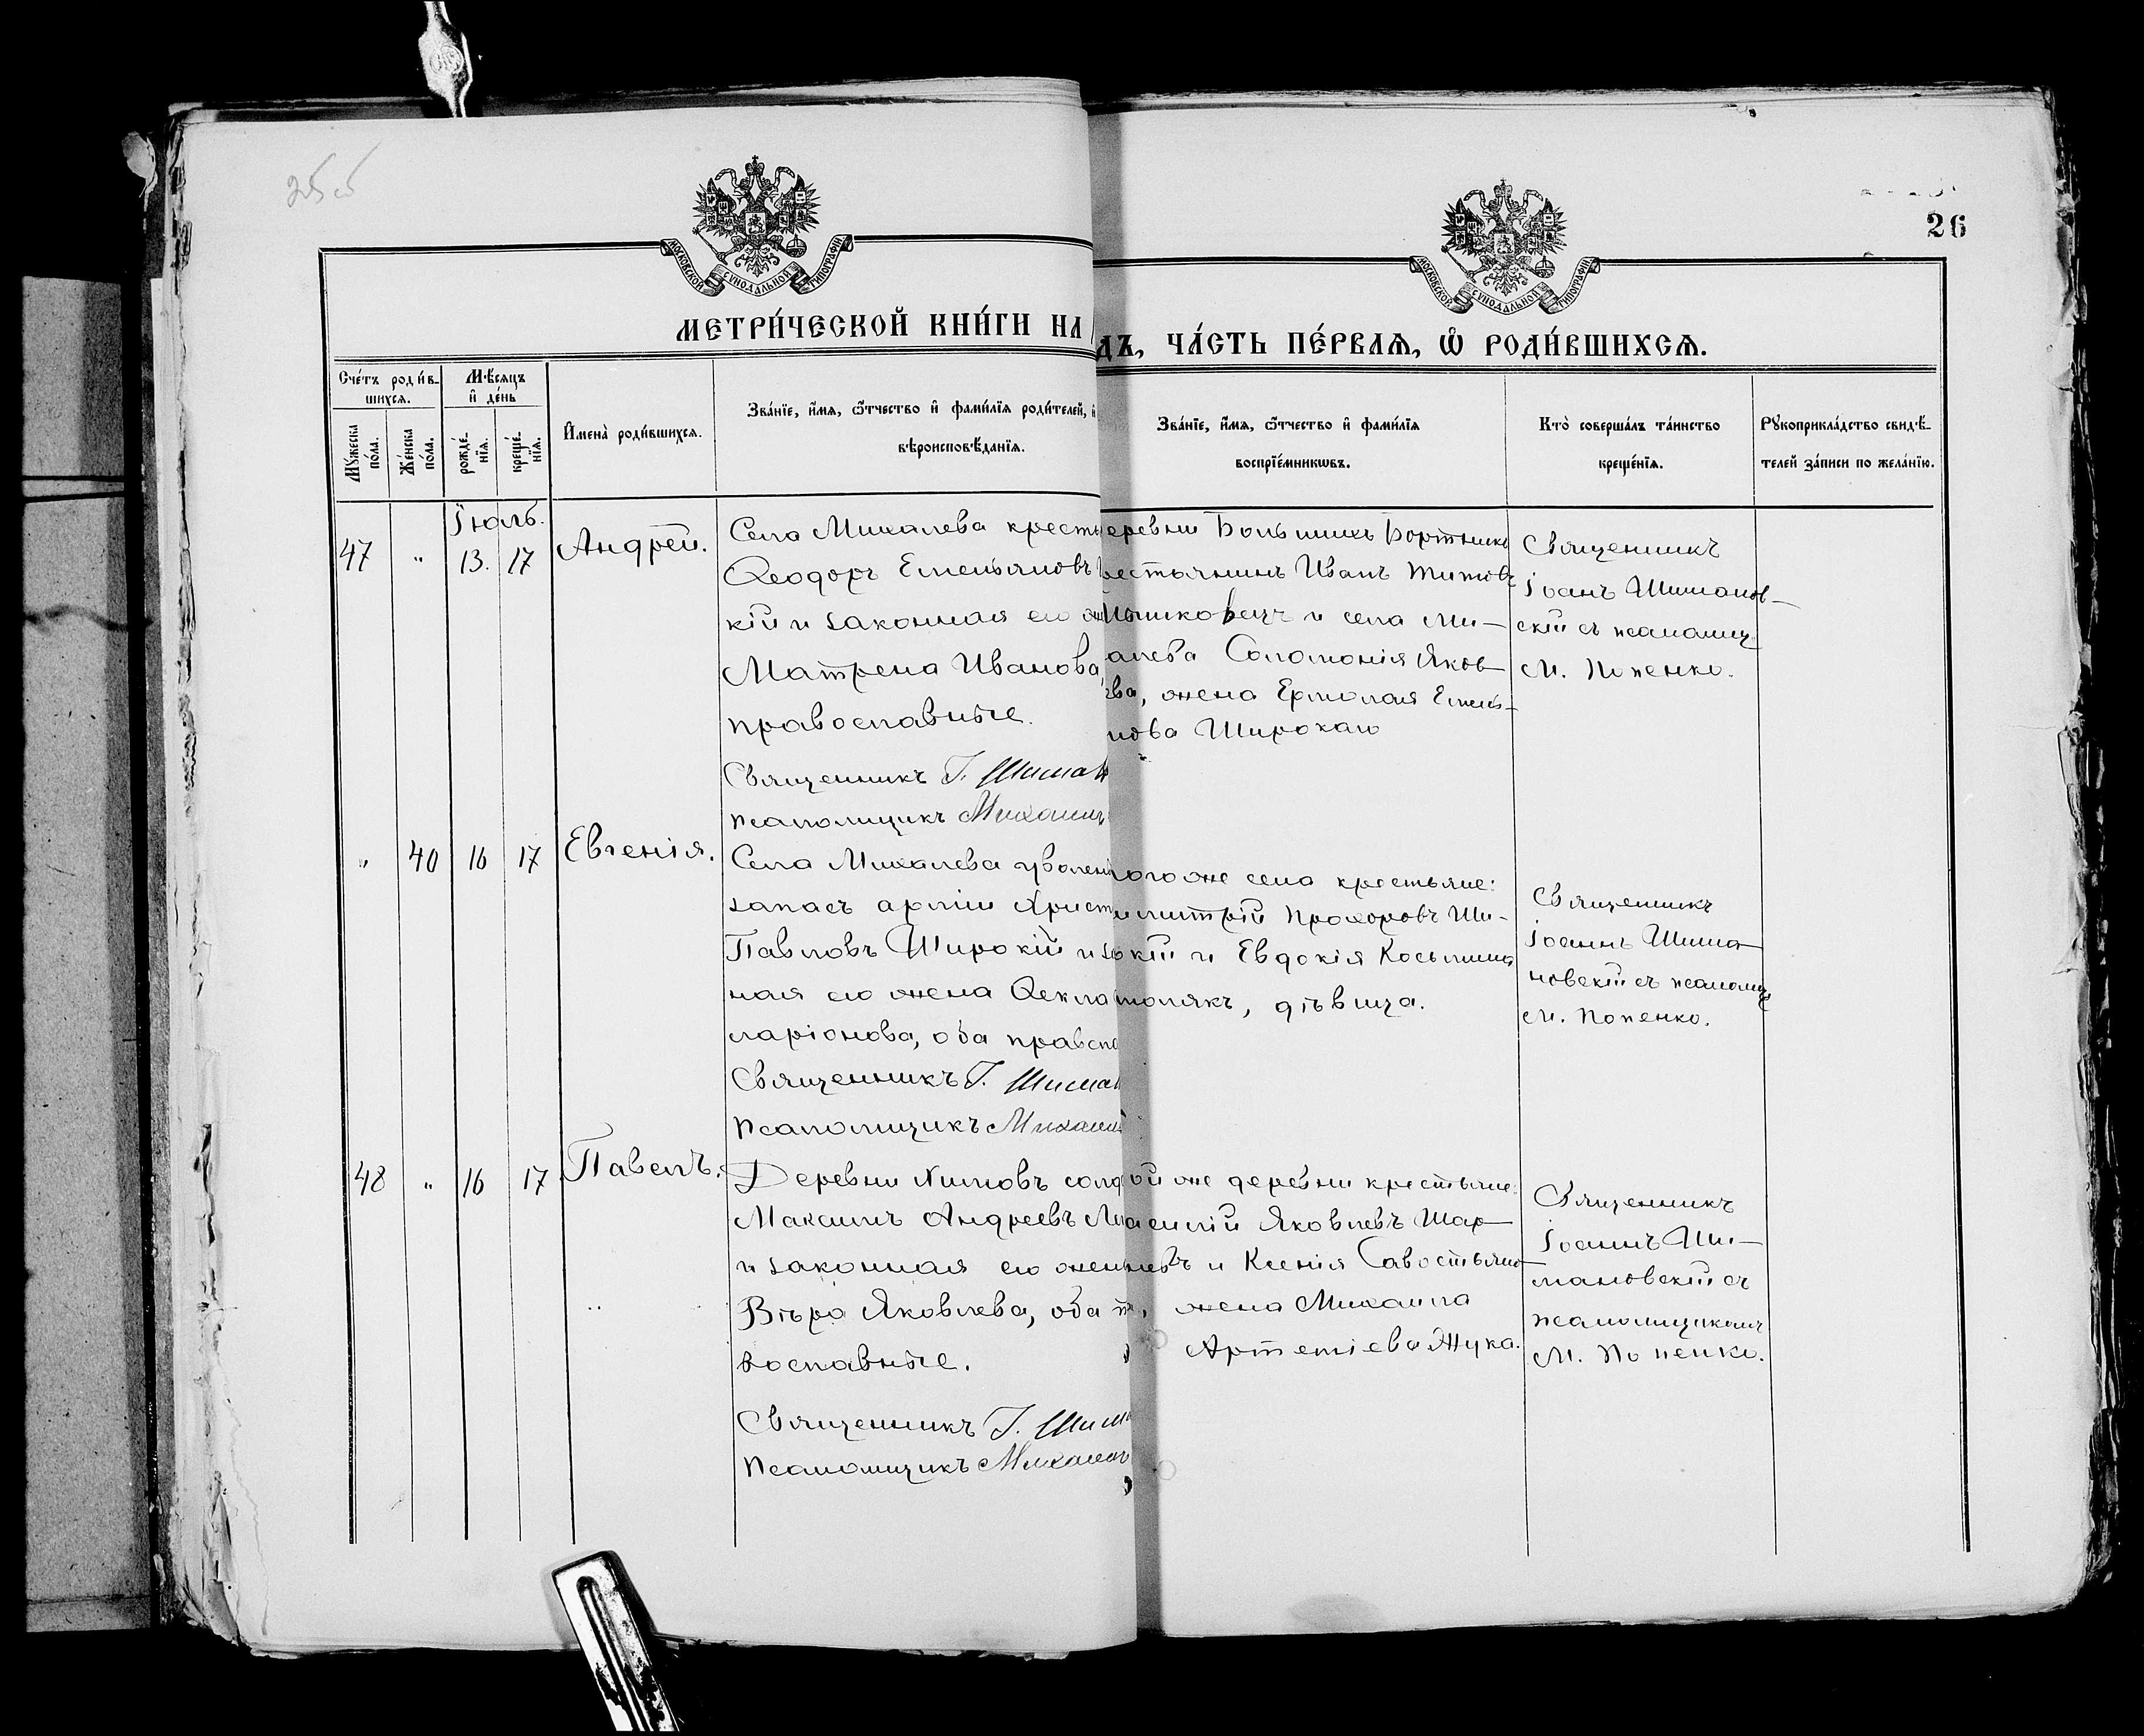 255
26
МОСКОВСКОЙ СѴНОДАЛЬНОЙ ТИПОГРАФІИ
МОСКОВСКОЙ СѴНОДАЛЬНОЙ ТИПОГРАФІИ
МЕТРИ́ЧЕСКОЙ КНИ́ГИ НА
ДЪ, ЧА́СТЬ ПЕ́РВАѦ, Ѡ҆ РОДИ́ВШИХСѦ.
Сче́тъ роди́в-
шихсѧ.
Мѣ́сѧцъ
и҆ де́нь
Мꙋ́жеска по́ла.
Же́нска по́ла.
рожде́-нїѧ.
креще́-нїѧ.
И҆мена̀ роди́вшихсѧ.
Зва́нїе, и҆́мѧ, ѻ҆́тчество и҆ фами́лїѧ роди́телей, и҆
вѣроисповѣ́данїѧ.
Зва́нїе, и҆́мѧ, ѻ҆́тчество и҆ фами́лїѧ
воспрїе́мникѡвъ.
Кто̀ соверша́лъ та́инство
креще́нїѧ.
Рꙋкоприкла́дство свидѣ́-
телей за́писи по жела́нїю.
Іюль.
47 " 13. 17 Андрей.
Села Михалева кресть
Ѳеодоръ Емельяновъ
кій и законная его
Матрена Иванова,
православные.
Священникъ І. Шиман
Псаломщикъ Михаилъ
еревни Большихъ Бортник
рестьянинъ Иванъ Титовъ
и села Ми-
алева Соломонія Яков-
ева, жена Ермолая Емель-
нова Широкаго
Священникъ
Іоанъ Шиманов-
скій съ псаломщ.
М. Попенко.
" 40 16 17 Евгенія.
Села Михалева уволен
запасъ арміи Христ
Павловъ Широкій и за
ная его жена Ѳекла
ларіонова, оба правосл
Священникъ І. Шиман
Псаломщикъ Михаил
ого же села крестьяне:
имитрій Прохоровъ Ши-
окій и Евдокія Косьмина
поляхъ, дѣвица.
Священникъ
Іоаннъ Шима-
новскій съ псаломщ
М. Попенко.
48 " 16 17 Павелъ.
Деревни Климовъ солд
Максимъ Андреевъ
и законная его жена
Вѣра Яковлева, оба п
вославные.
Священникъ І. Шим
Псаломщикъ Михаилъ
ой же деревни крестьяне:
асилій Яковлевъ Шар-
и Ксенія Савостьяно-
жена Михаила
Артеміева Жука.
Священникъ
Іоаннъ Ши-
мановскій съ
псаломщикомъ
М. Попенко.